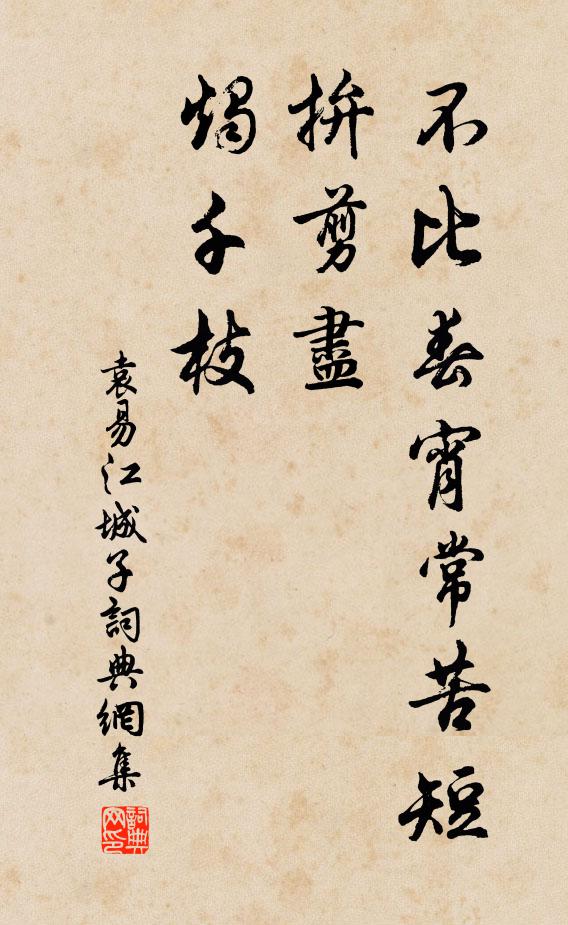 不比春宵常苦短
拚剪盡
燭千枝
袁易江城子詞典網集
詞典网印